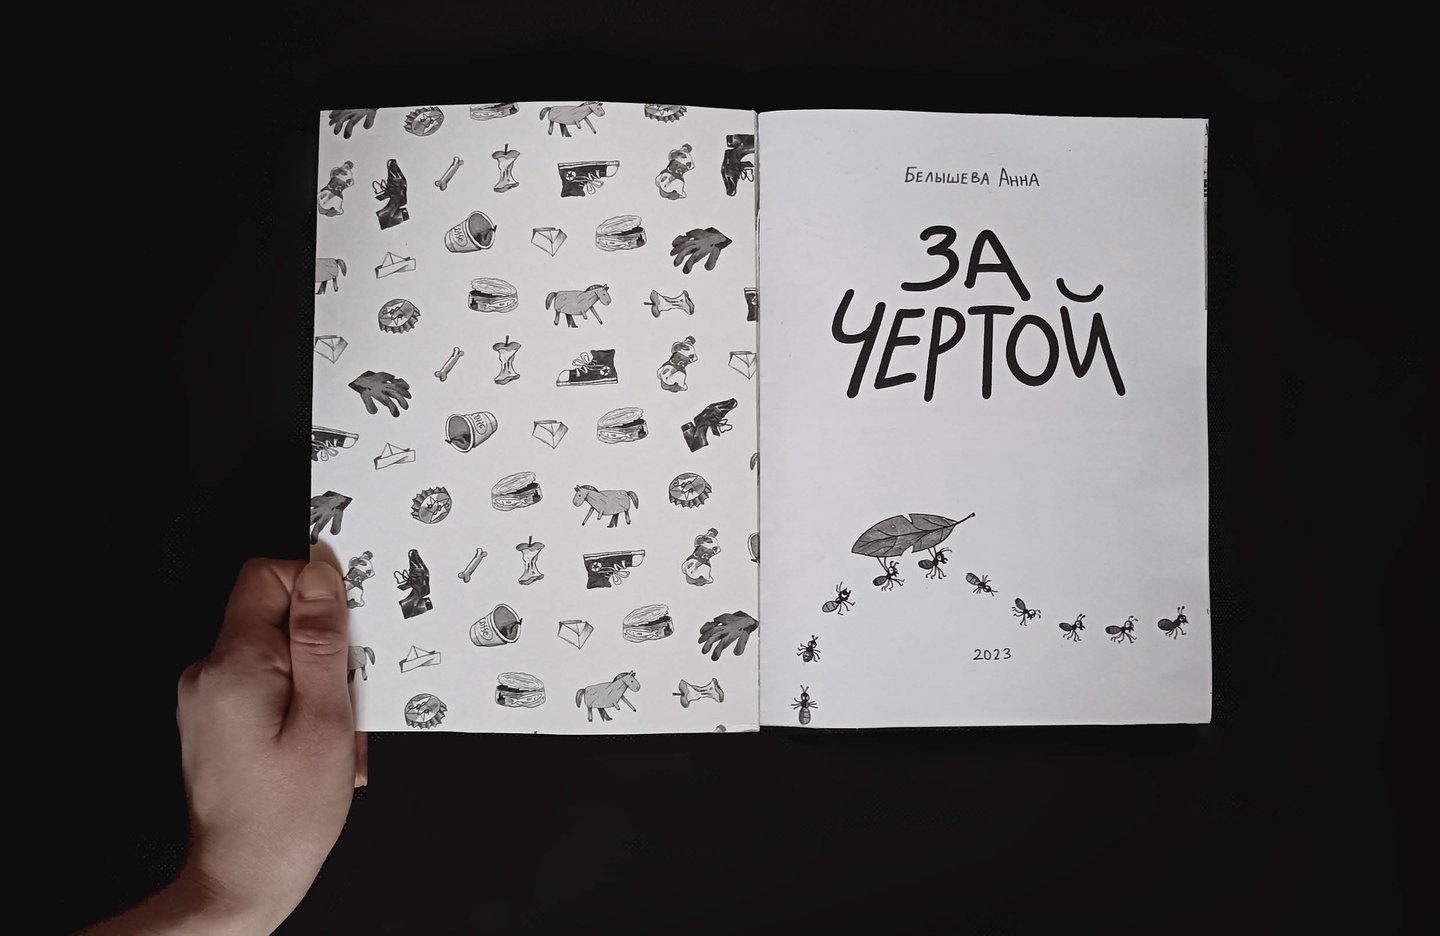 Белышева Анна
ЗА
ЧЕРТОЙ
2023